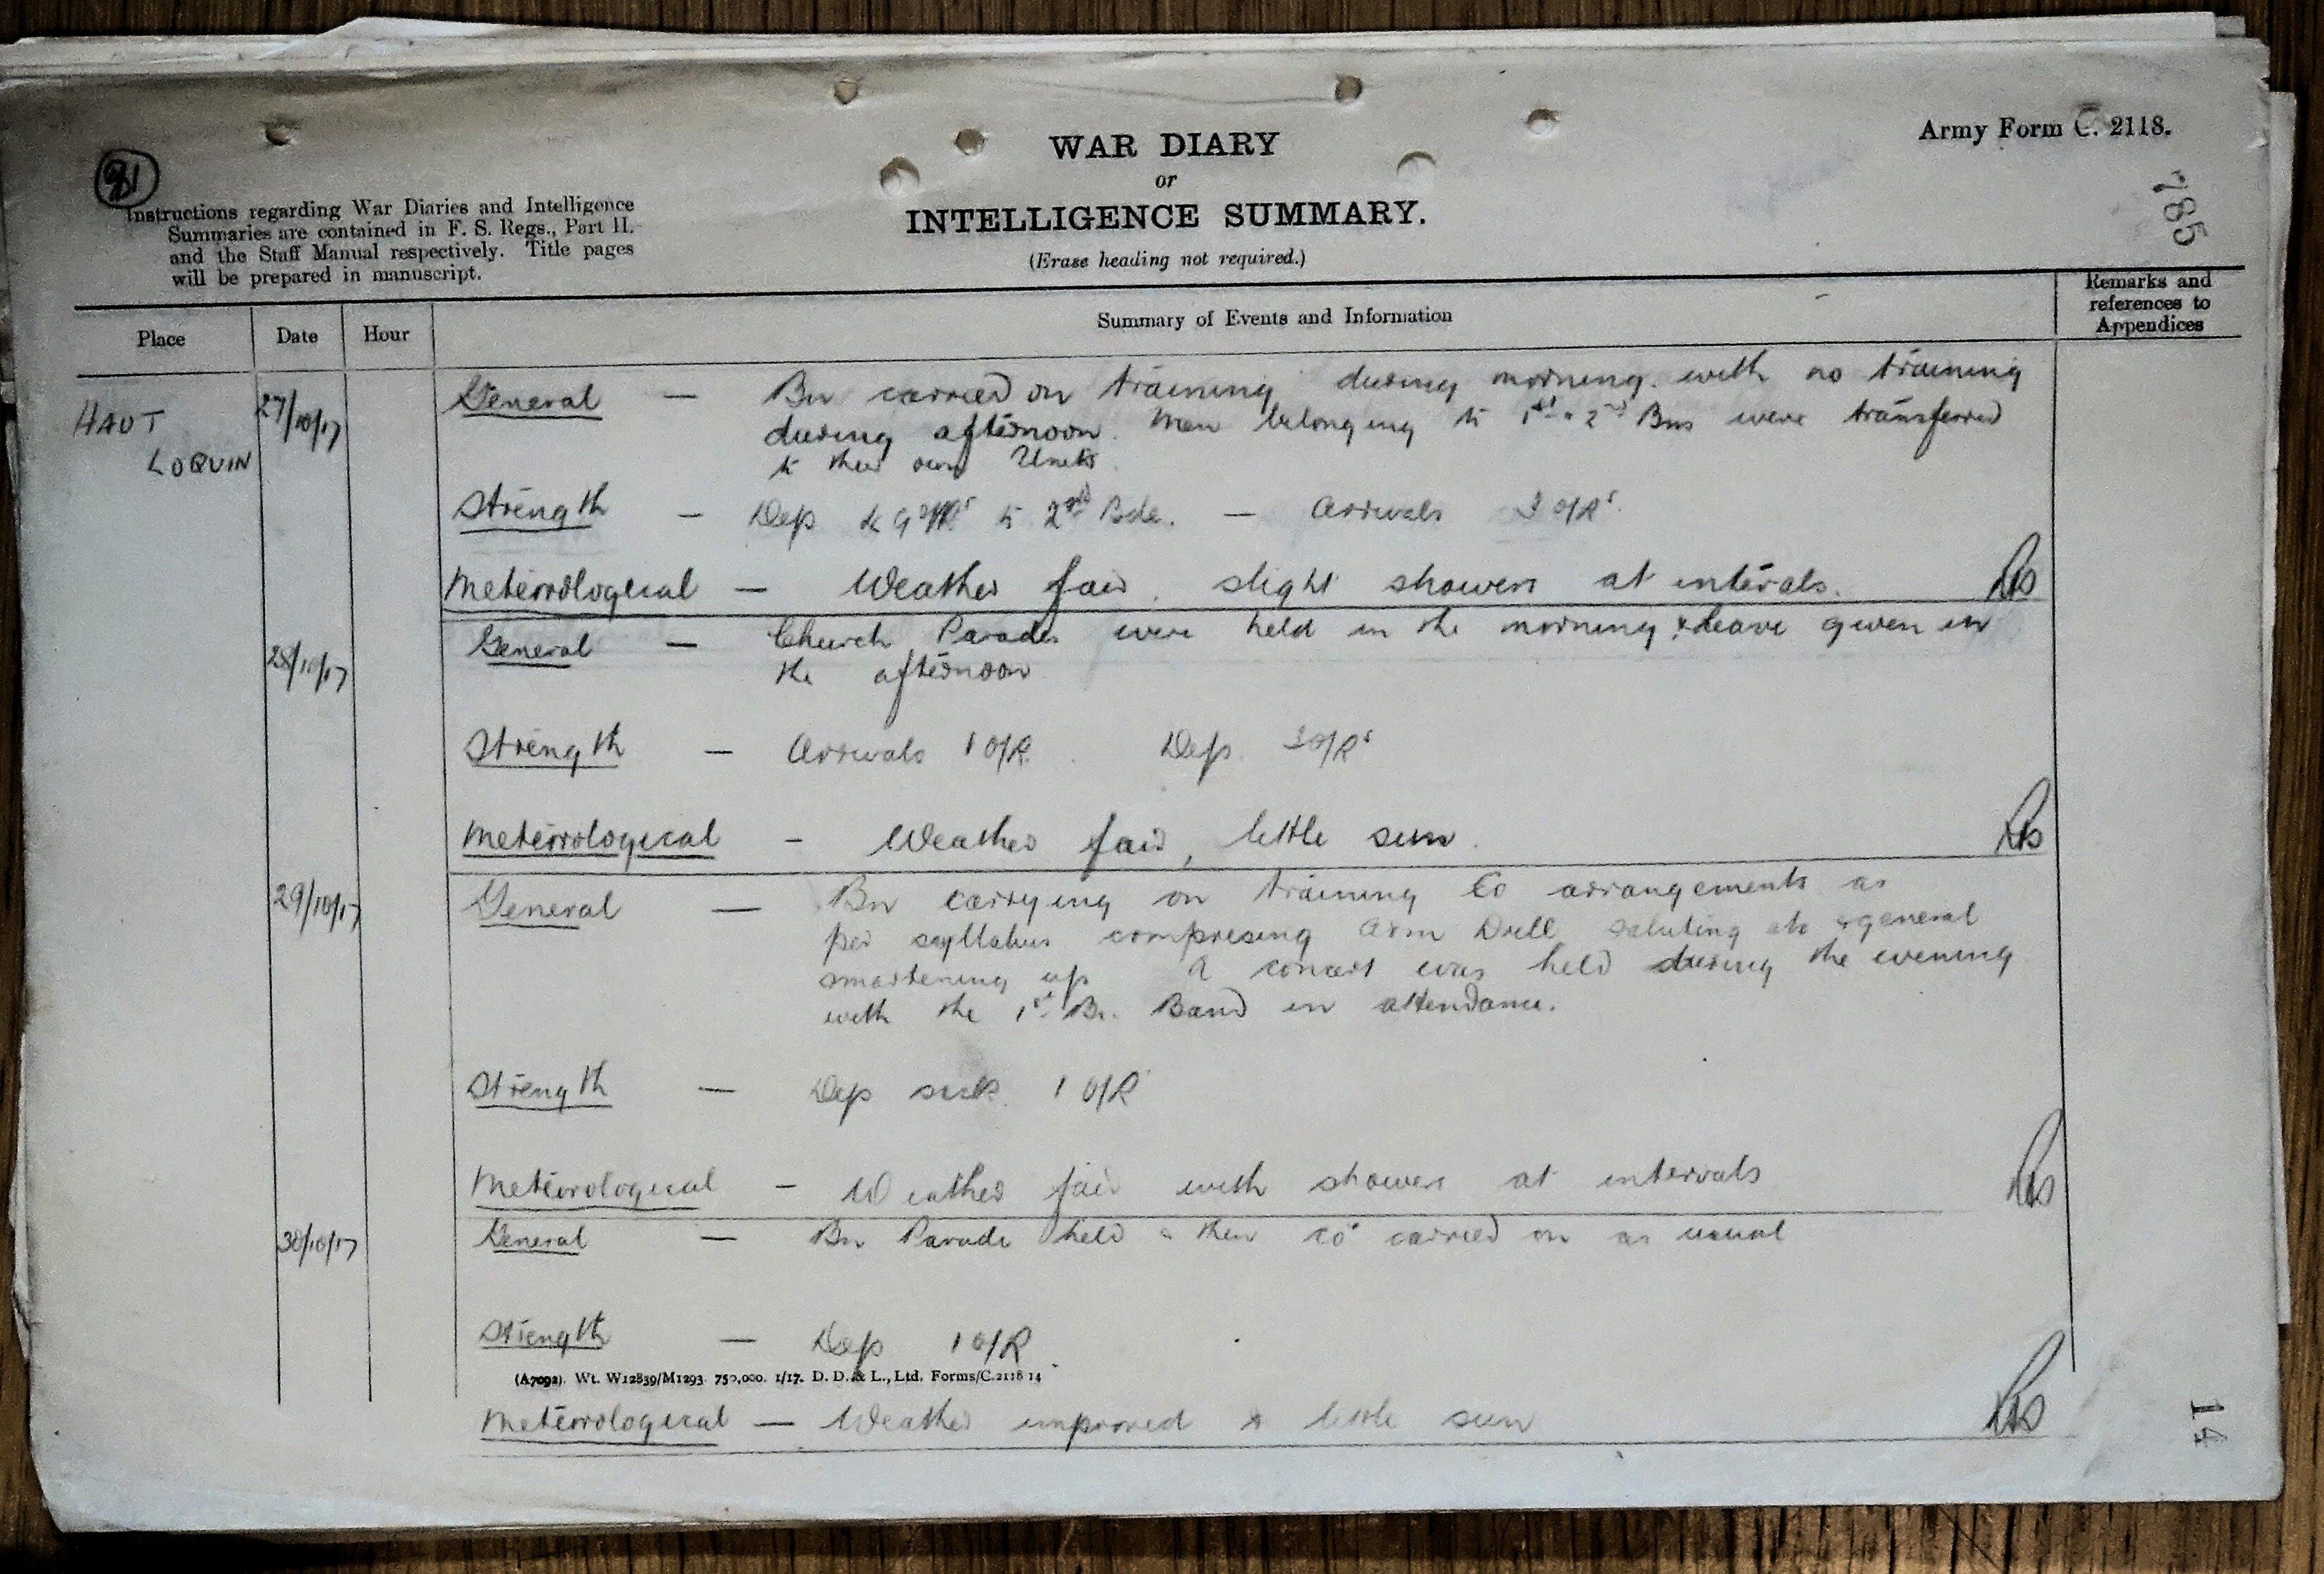 Army Form C. 2118.
WAR DIARY
or
INTELLIGENCE SUMMARY.
(Erase heading not required.)
91
Instructions regarding War Diaries and Intelligence
Summaries are contained in F. S. Regs., Part II.
and the Staff Manual respectively. Title pages
will be prepared in manuscript.
785
Place
Date
Hour
Summary of Events and Information
Remarks and
references to
Appendices
HAUT
LOQUIN
27/10/17
General — Bn carried on training during morning. with no training
during afternoon. Men belonging to 1st & 2nd Bns were transferred
to their own Units.
Strength — Dep to 2nd Bde. — Arrivals 3 O/Rs.
Meteorological — Weather fair. slight showers at intervals.
28/10/17
General — Church Parades were held in the morning & leave given in
the afternoon
Strength — Arrivals 1 O/R. Dep. 3 O/Rs
Meteorological — Weather fair, little sun.
29/10/17
General — Bn carrying on training Co arrangements as
per syllabus comprising Arm Drill saluting etc & general
smartening up A concert was held during the evening
with the 1st Bn. Band in attendance.
Strength — Dep sick. 1 O/R
Meteorological — Weather fair with showers at intervals
30/10/17
General — Bn Parade held & then Cos carried on as usual
Strength — Dep 1 O/R
(A7092). Wt. W12839/M1293. 750,000. 1/17. D. D. & L., Ltd. Forms/C.2118 14
Meteorological — Weather improved & little sun
14